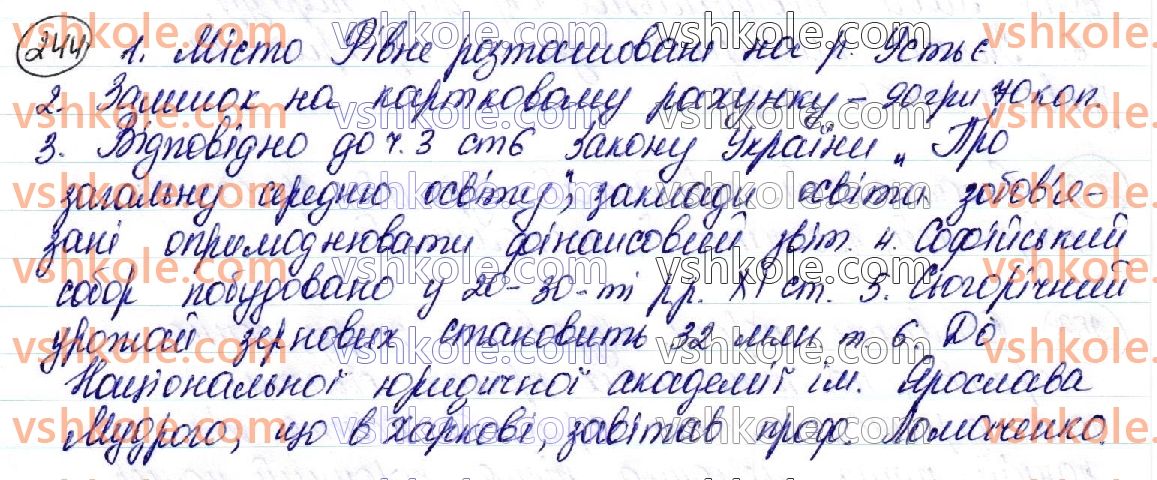 244 1. Місто Рівне розташовані на р. Устьє.
2. Залишок на картковому рахунку – 90 грн 70 коп.
3. Відповідно до ч. 3 ст 6 Закону України „Про
загальну середню освіту”, заклади освіти зобов'я-
зані оприлюднювати фінансовий звіт. 4. Софійський
собор побудовано у 20-30-ті рр. XI ст. 5. Сьогорічний
урожай зернових становить 32 млн т 6. До
Національної юридичної академії ім. Ярослава
Мудрого, що в Харкові, завітав проф. Ломаченко.
vshkole.com